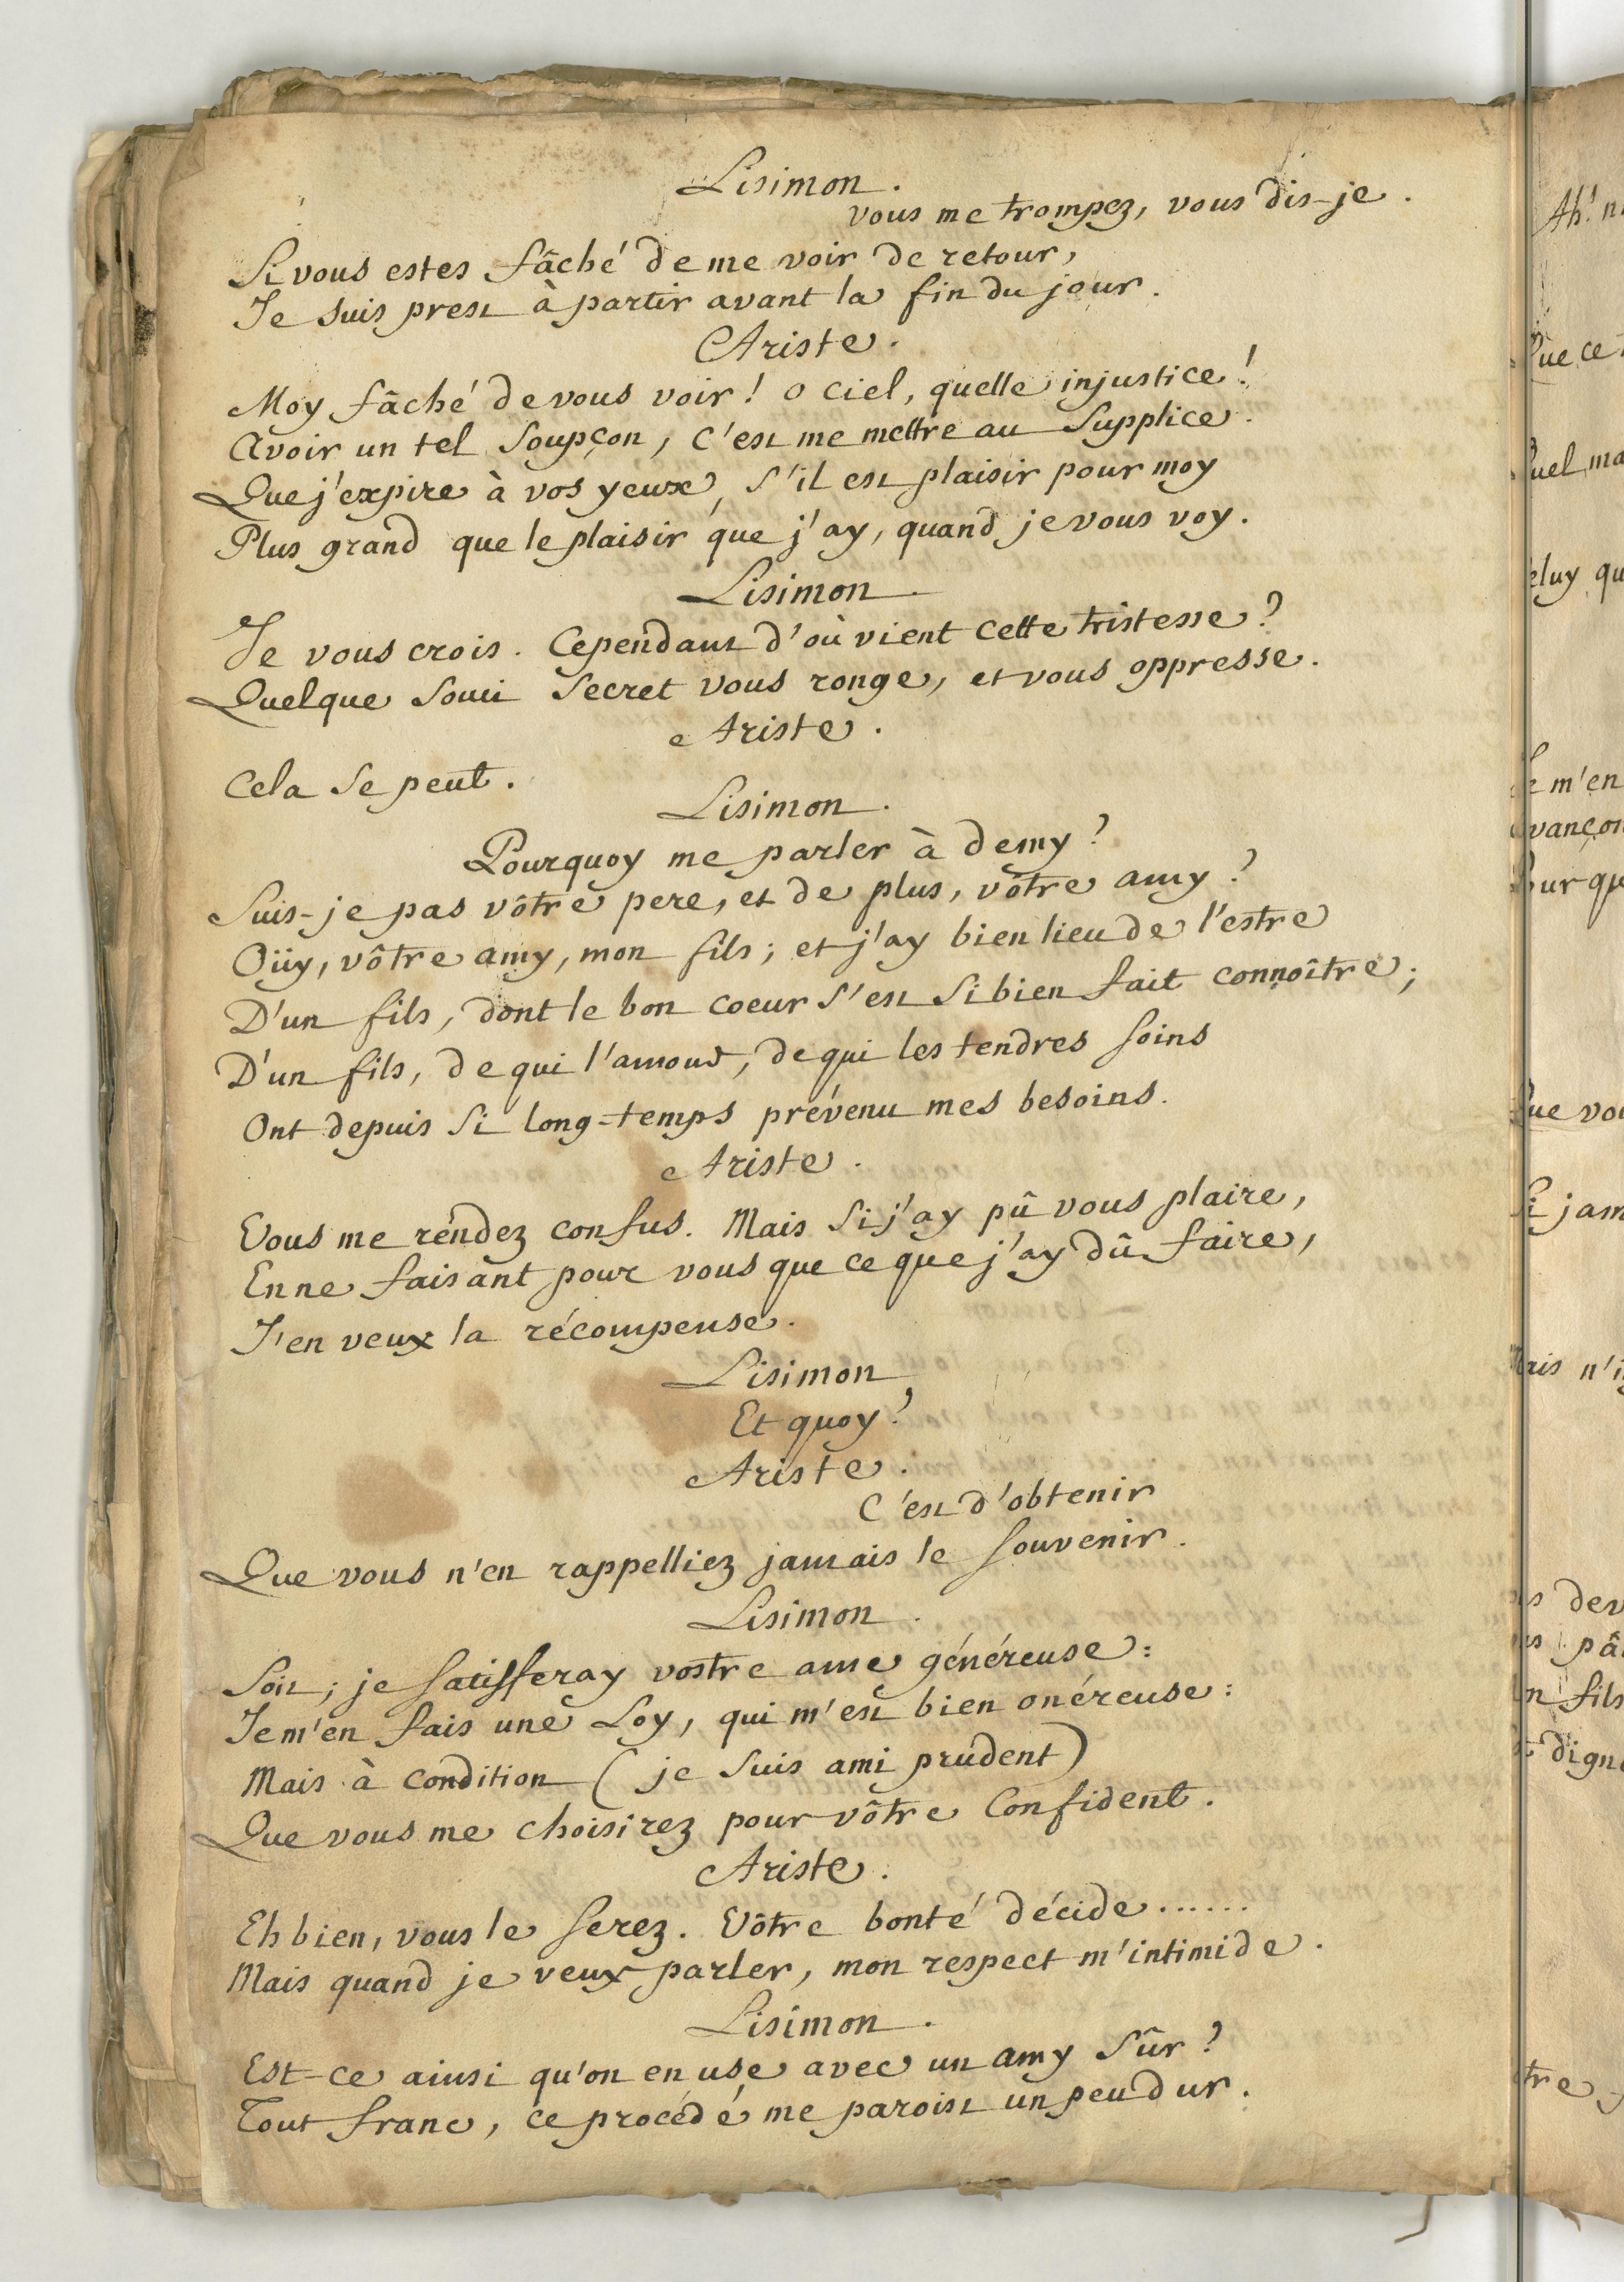 Lisimon.
vous me trompez, vous dis-je.
Si vous estes fâché de me voir de retour,
Je suis prest à partir avant la fin du jour.
Ariste.
Moy fâché de vous voir! o ciel, quelle injustice!
Avoir un tel Soupçon, c'est me mettre au Supplice.
Que j'expire à vos yeux, s'il est plaisir pour moy
Plus grand que le plaisir que j'ay, quand je vous voy.
Lisimon
Je vous crois. Cependant d'où vient cette tristesse?
Quelque souci Secret vous ronge, et vous oppresse.
Ariste.
Cela se peut.
Lisimon.
Pourquoy me parler à demy?
Suis-je pas vôtre pere, et de plus, vôtre amy?
Oüy, vôtre amy, mon fils; et j'ay bien lieu de l'estre
D'un fils, dont le bon coeur s'est si bien fait connoître;
D'un fils, de qui l'amour, de qui les tendres soins
Ont depuis si long-temps prévenu mes besoins.
Ariste.
Vous me rendez confus. Mais si j'ay pû vous plaire,
En ne faisant pour vous que ce que j'ay dû faire,
J'en veux la récompense.
Lisimon
Et quoy?
Ariste.
C'est d'obtenir
Que vous n'en rappelliez jamais le souvenir.
Lisimon.
Soit; je satisferay vostre ame généreuse:
Je m'en fais une Loy, qui m'est bien onéreuse:
Mais à condition (je suis ami prudent)
Que vous me choisirez pour vôtre Confident.
Ariste.
Eh bien, vous le serez. Vôtre bonté décide......
Mais quand je veux parler, mon respect m'intimide.
Lisimon.
Est-ce ainsi qu'on en use avec un amy sûr?
Tout franc, ce procédé me paroist un peu dur.
Ah!